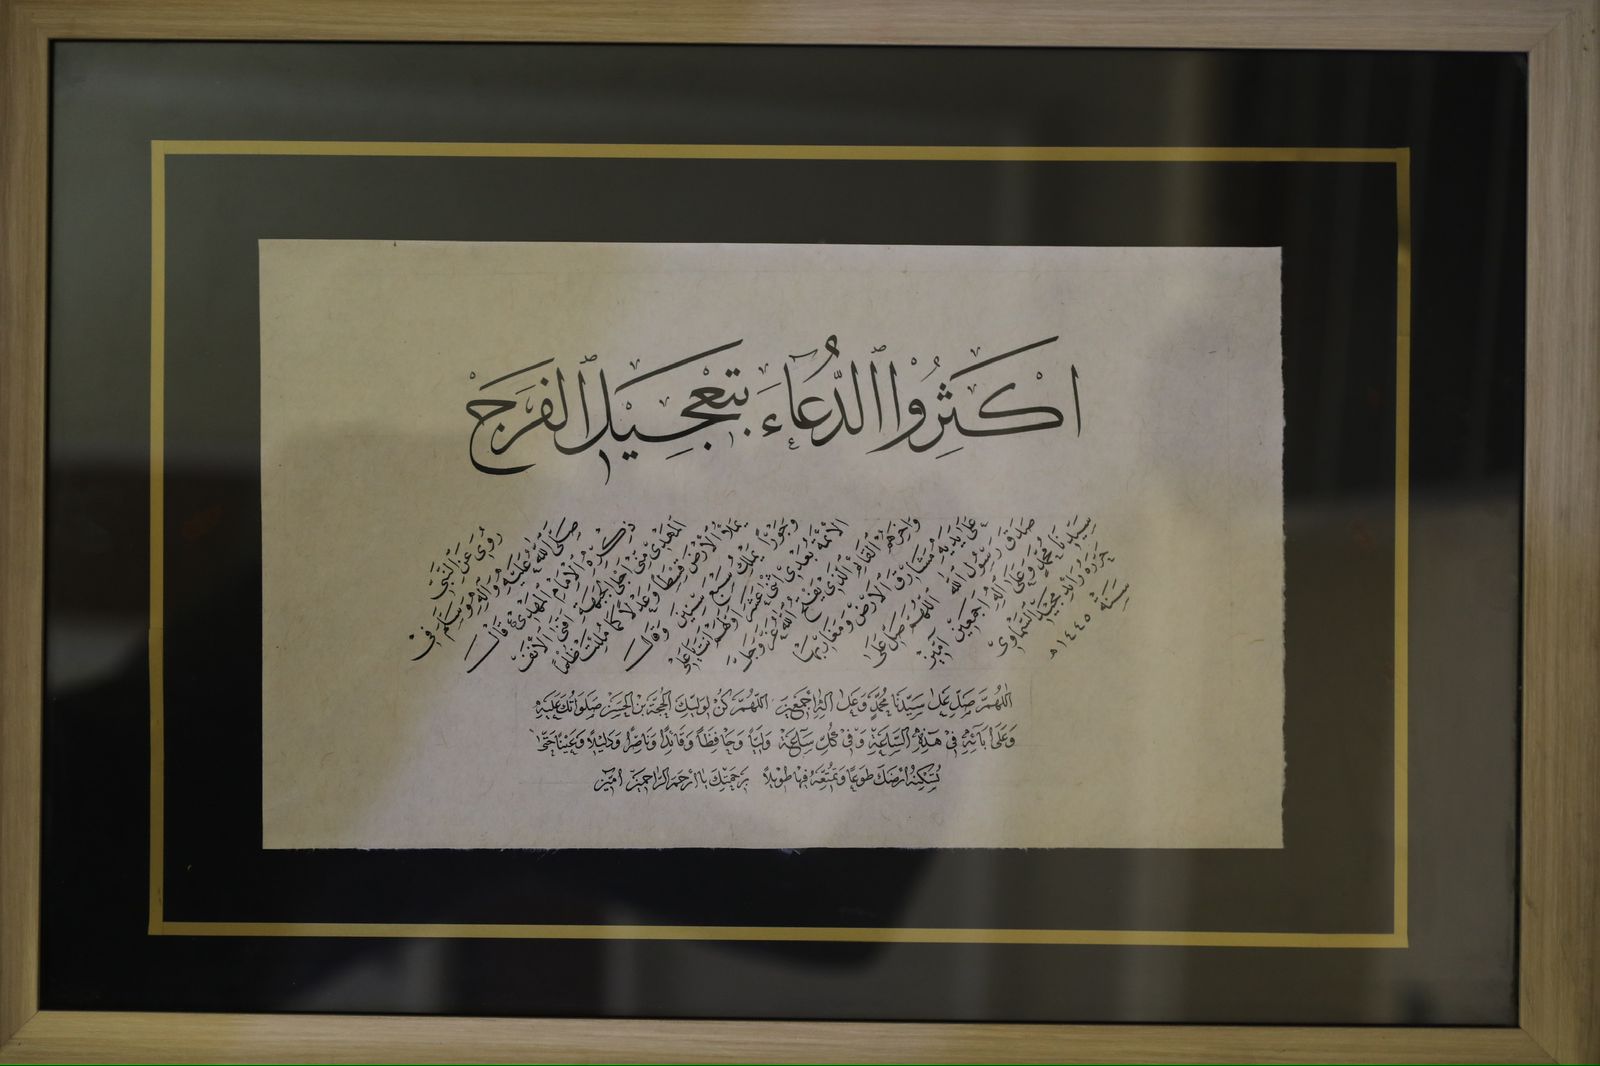 اكْثِرُوا الدُّعَاءَ بتَعْجِيلِ الفَرَجْ
رُوِيَ عَنِ النَّبِيِّ
صَلَّى اللهُ عَلَيْهِ وَآلِهِ وَسَلَّمَ فِي
ذِكْرِهِ الْإِمَامَ الْمَهْدِيَّ قَالَ
الْمَهْدِيُّ مِنِّي أَجْلَى الْجَبْهَةِ أَقْنَى الْأَنْفِ
يَمْلَأُ الْأَرْضَ قِسْطًا وَعَدْلًا كَمَا مُلِئَتْ ظُلْمًا
وَجَوْرًا يَمْلِكُ سَبْعَ سِنِينَ وَقَالَ
الْأَئِمَّةُ بَعْدِي اثْنَيْ عَشَرَ أَوَّلُهُمْ أَنْتَ يَا عَلِيُّ
وَآخِرُهُمُ الْقَائِمُ الَّذِي يَفْتَحُ اللهُ عَزَّ وَجَلَّ
عَلَى يَدَيْهِ مَشَارِقَ الْأَرْضِ وَمَغَارِبَهَا
صَدَقَ رَسُولُ اللهِ اللَّهُمَّ صَلِّ عَلَى
سَيِّدِنَا مُحَمَّدٍ وَعَلَى آلِهِ أَجْمَعِينَ آمِينَ
حَرَّرَهُ رائد مجيد السماوي
سنة ١٤٤٥هـ
اللَّهُمَّ صَلِّ عَلَى سَيِّدِنَا مُحَمَّدٍ وَعَلَى آلِهِ أَجْمَعِينَ اللَّهُمَّ كُنْ لِوَلِيِّكَ الْحُجَّةِ بْنِ الْحَسَنِ صَلَوَاتُكَ عَلَيْهِ
وَعَلَى آبَائِهِ فِي هَذِهِ السَّاعَةِ وَفِي كُلِّ سَاعَةٍ وَلِيًّا وَحَافِظًا وَقَائِدًا وَنَاصِرًا وَدَلِيلًا وَعَيْنًا حَتَّى
تُسْكِنَهُ أَرْضَكَ طَوْعًا وَتُمَتِّعَهُ فِيهَا طَوِيلًا بِرَحْمَتِكَ يَا أَرْحَمَ الرَّاحِمِينَ آمِينَ